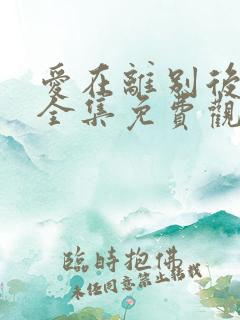 愛在離別後
全集免費觀
臨時抱佛
未經同意禁止轉載